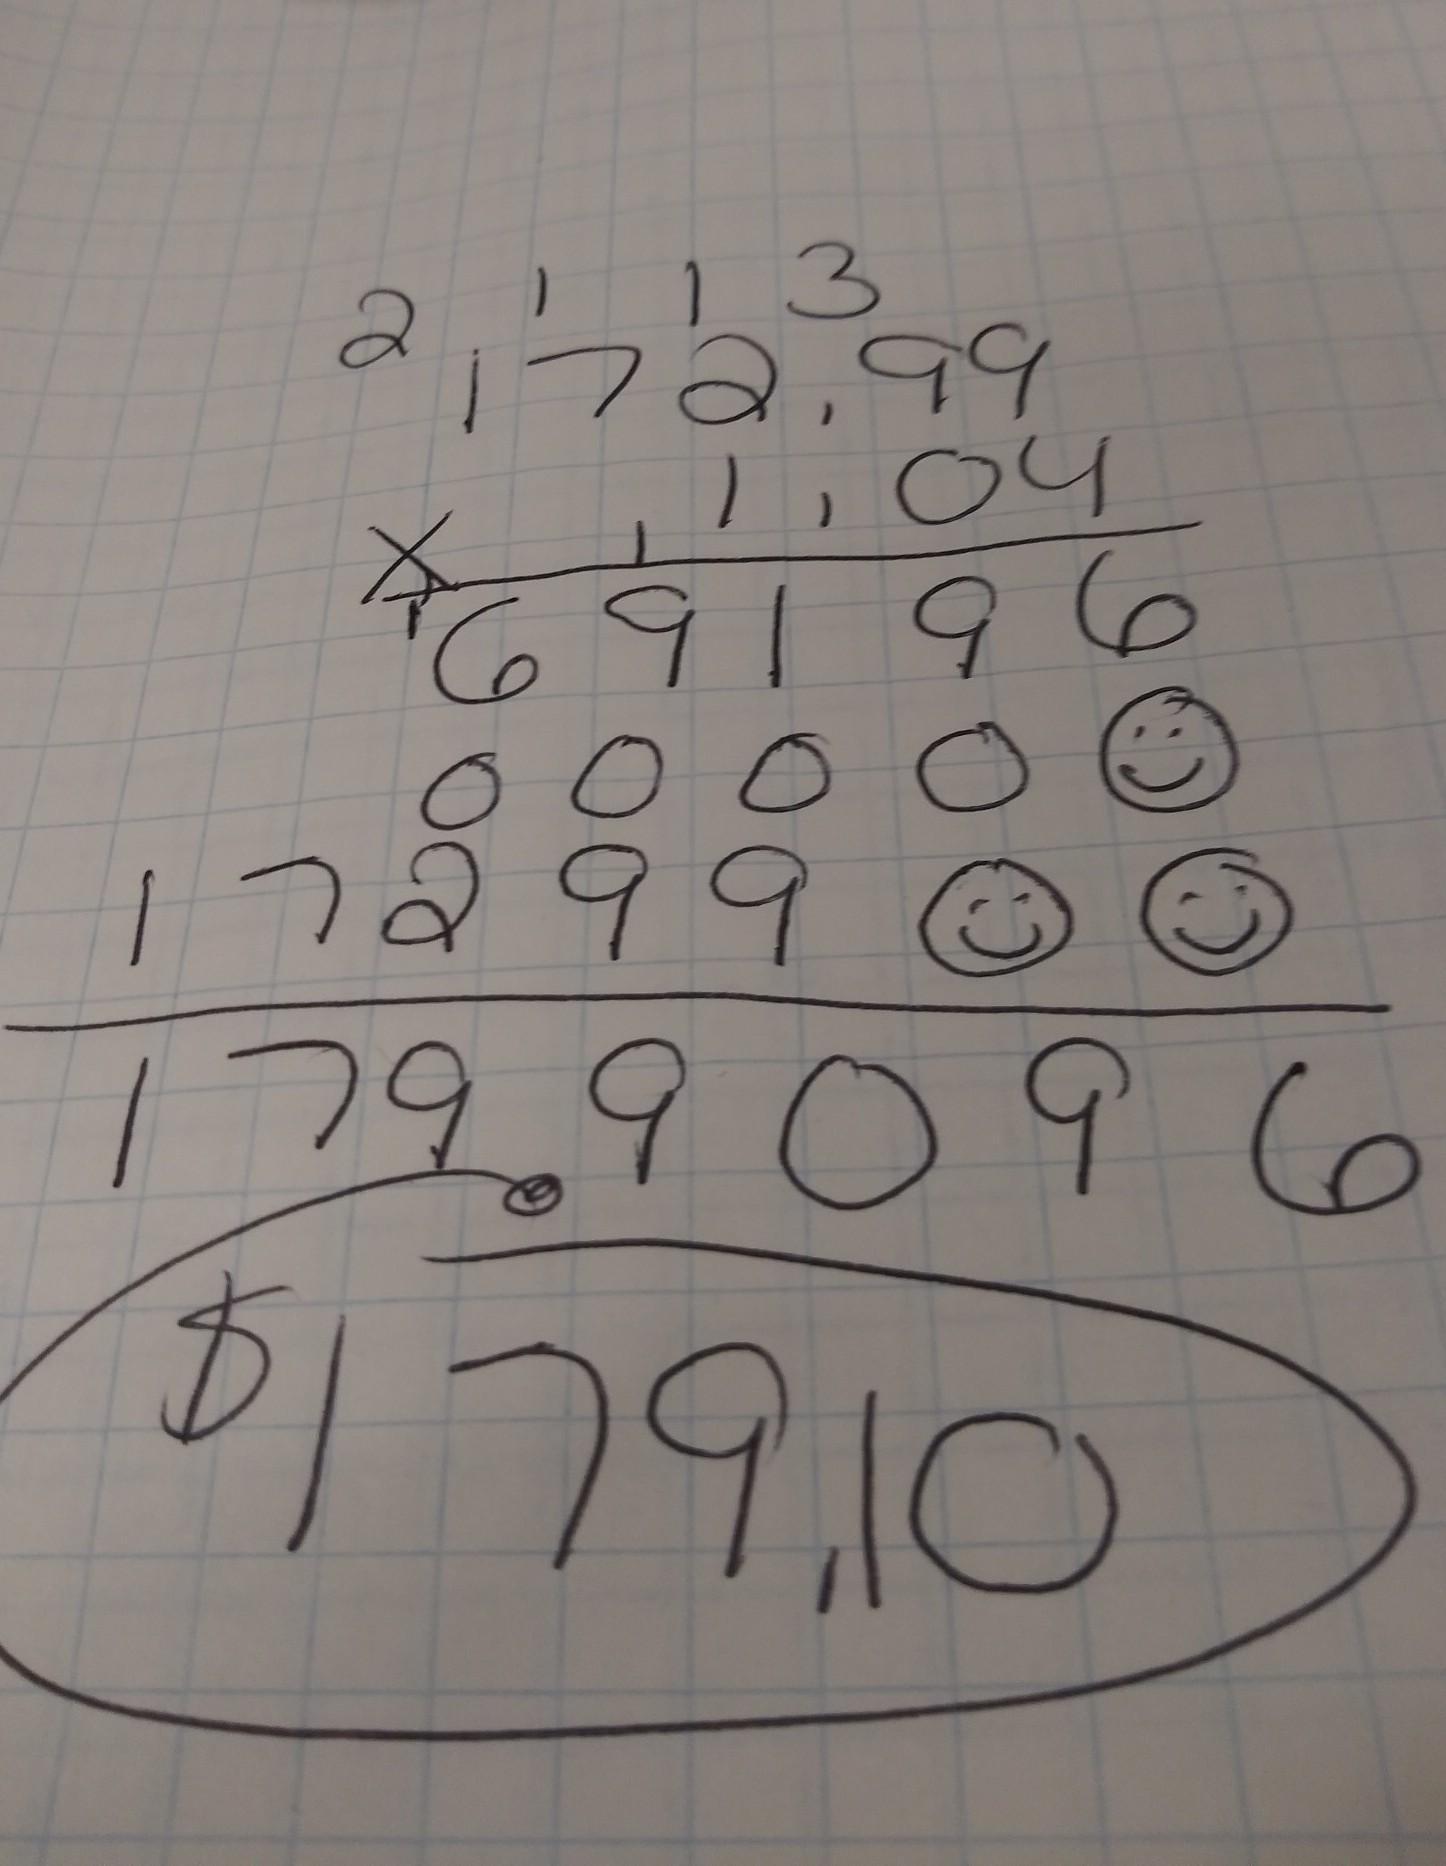 2 1 1 3
172.99
x 1.04
1 1
69196
0000☺
17299☺☺
179.9096
$179.10